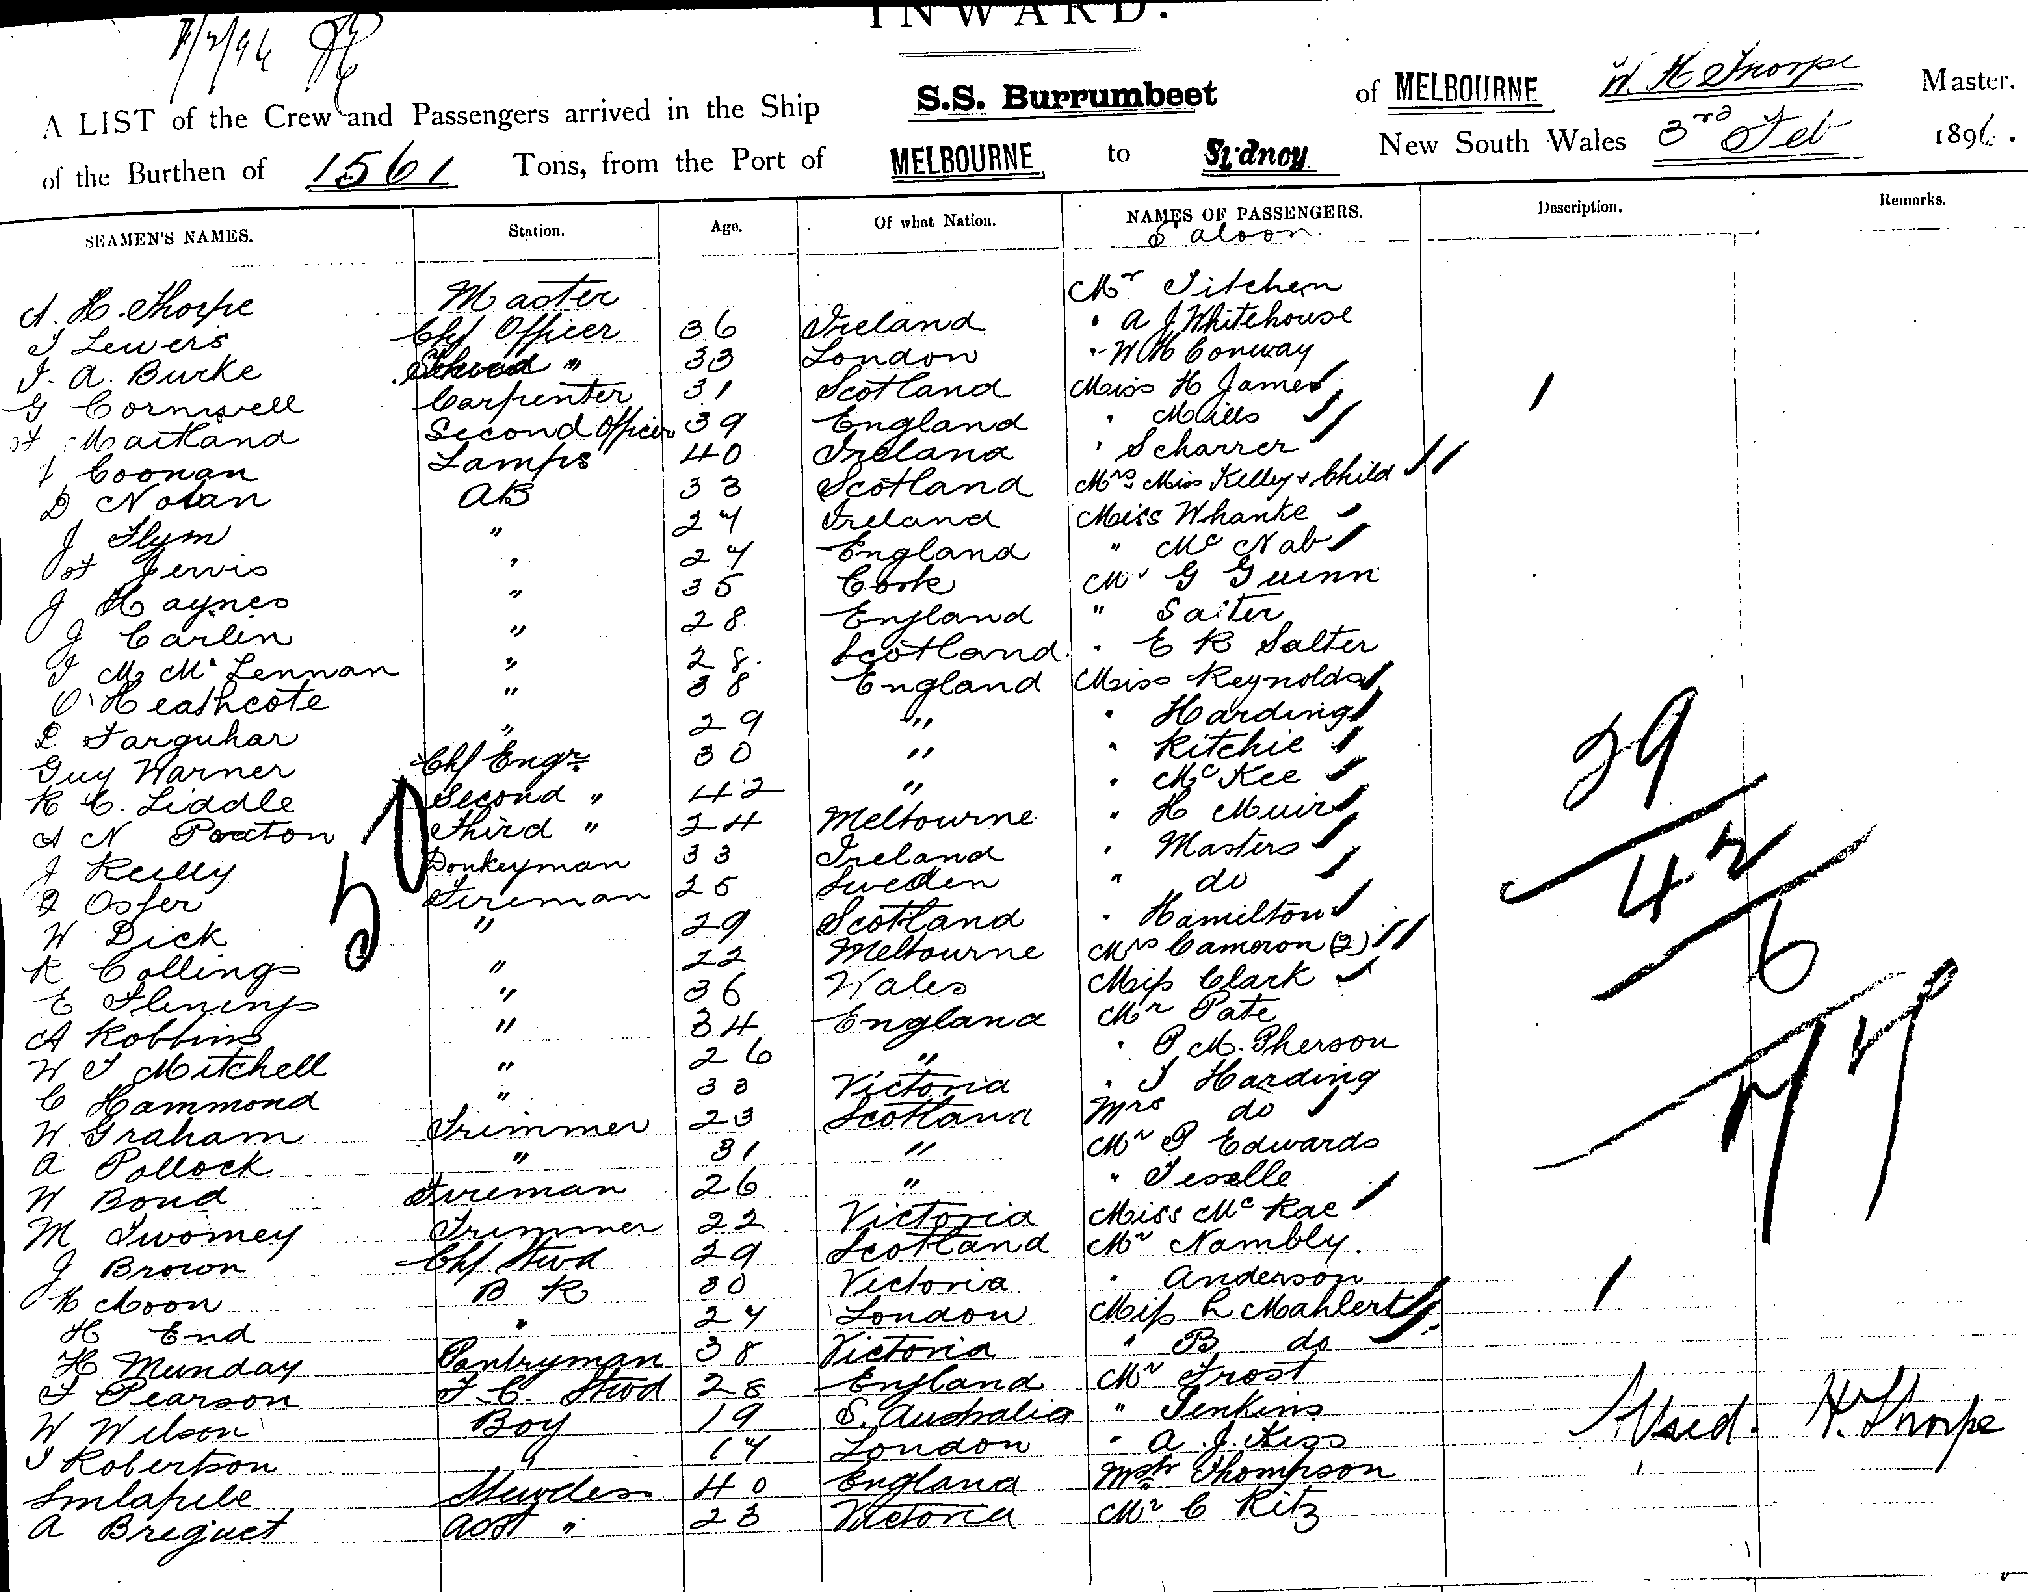 INWARD.
A LIST of the Crew and Passengers arrived in the Ship S.S. Burrumbeet of MELBOURNE W. H Thorpe Master.
of the Burthen of 1561 Tons, from the Port of MELBOURNE to Sydney New South Wales 3rd Feb 1896.
SEAMEN'S NAMES. Station. Age. Of what Nation. NAMES OF PASSENGERS. Description. Remarks.
Saloon
H. Thorpe Master Mr Titchen
Lewers Chf Officer 36 Ireland " A J Whitehouse
A. Burke Third " 33 London " W H Conway
G Cornwell Carpenter 31 Scotland Miss H James
Maitland Second Officer 39 England " Mills
Coonan Lamps 40 Ireland " Scharrer
D Nolan AB 33 Scotland Mrs Miss Kelly & Child
J Flym " 27 Ireland Miss Whanke
Jervis " 27 England " Mc Nab
J Haynes " 35 Cork Mr G Guinn
J Carlin " 28 England " Salter
M McLennan " 28. Scotland " E R Salter
Heathcote " 38 England Miss Reynolds
D Farquhar " 29 " " Harding
Guy Warner Chf Engr. 30 " " Ritchie
R C. Liddle Second " 42 " " McKee
A N Paxton Third " 24 Melbourne " H Muir
J Reilly Donkeyman 33 Ireland " Masters
Osfer Fireman 25 Sweden " do
W Dick " 29 Scotland " Hamilton
R Collings " 22 Melbourne Mrs Cameron (2)
E Flemings " 36 Wales Miss Clark
A Robbins " 34 England Mr Pate
W J Mitchell " 26 " " P M. Pherson
C Hammond " 33 Victoria " J Harding
W Graham Trimmer 23 Scotland Mrs do
A Pollock " 31 " Mr P Edwards
W Bond Fireman 26 " "
M Twomey Trimmer 22 Victoria Miss McRae
J Brown Chf Stwd 29 Scotland Mr Nambly.
Moon B R 30 Victoria " Anderson
H End " 27 London Miss L Mahlert
H Munday Pantryman 38 Victoria " B do
Pearson F. C. Stwd 28 England Mr Frost
W Wilson Boy 19 S. Australia " Jenkins
Robertson " 17 London " A. J. Kiss
Stewdess 40 England Mstr Thompson
A Breguet Asst " 23 Victoria Mr C Ritz
50
29
42
6
77
H. Thorpe